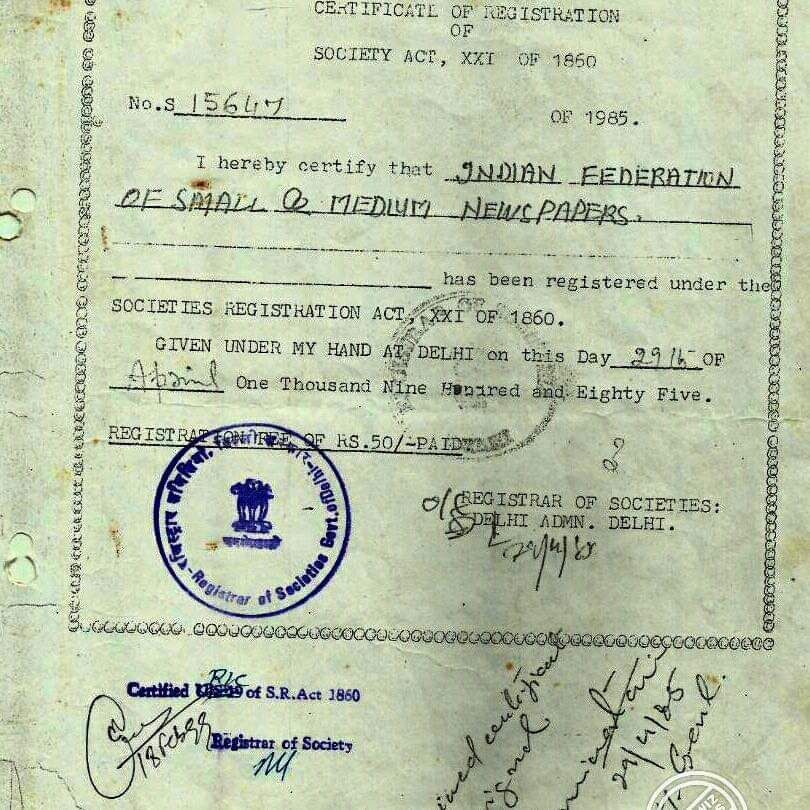 CERTIFICATE OF REGISTRATION
OF
SOCIETY ACT, XXI OF 1860
No.S 15647
OF 1985.
I hereby certify that INDIAN FEDERATION
OF SMALL & MEDIUM NEWSPAPERS.
has been registered under the
SOCIETIES REGISTRATION ACT, XXI OF 1860.
GIVEN UNDER MY HAND AT DELHI on this Day 29th OF
April One Thousand Nine Hundred and Eighty Five.
REGISTRATION FEE OF RS.50/-PAID
REGISTRAR OF SOCIETIES:
DELHI ADMN. DELHI.
29/4/85
Registrar of Societies Govt. of Delhi
Certified of S.R.Act 1860
18 Feb 99
Registrar of Society
29/4/85